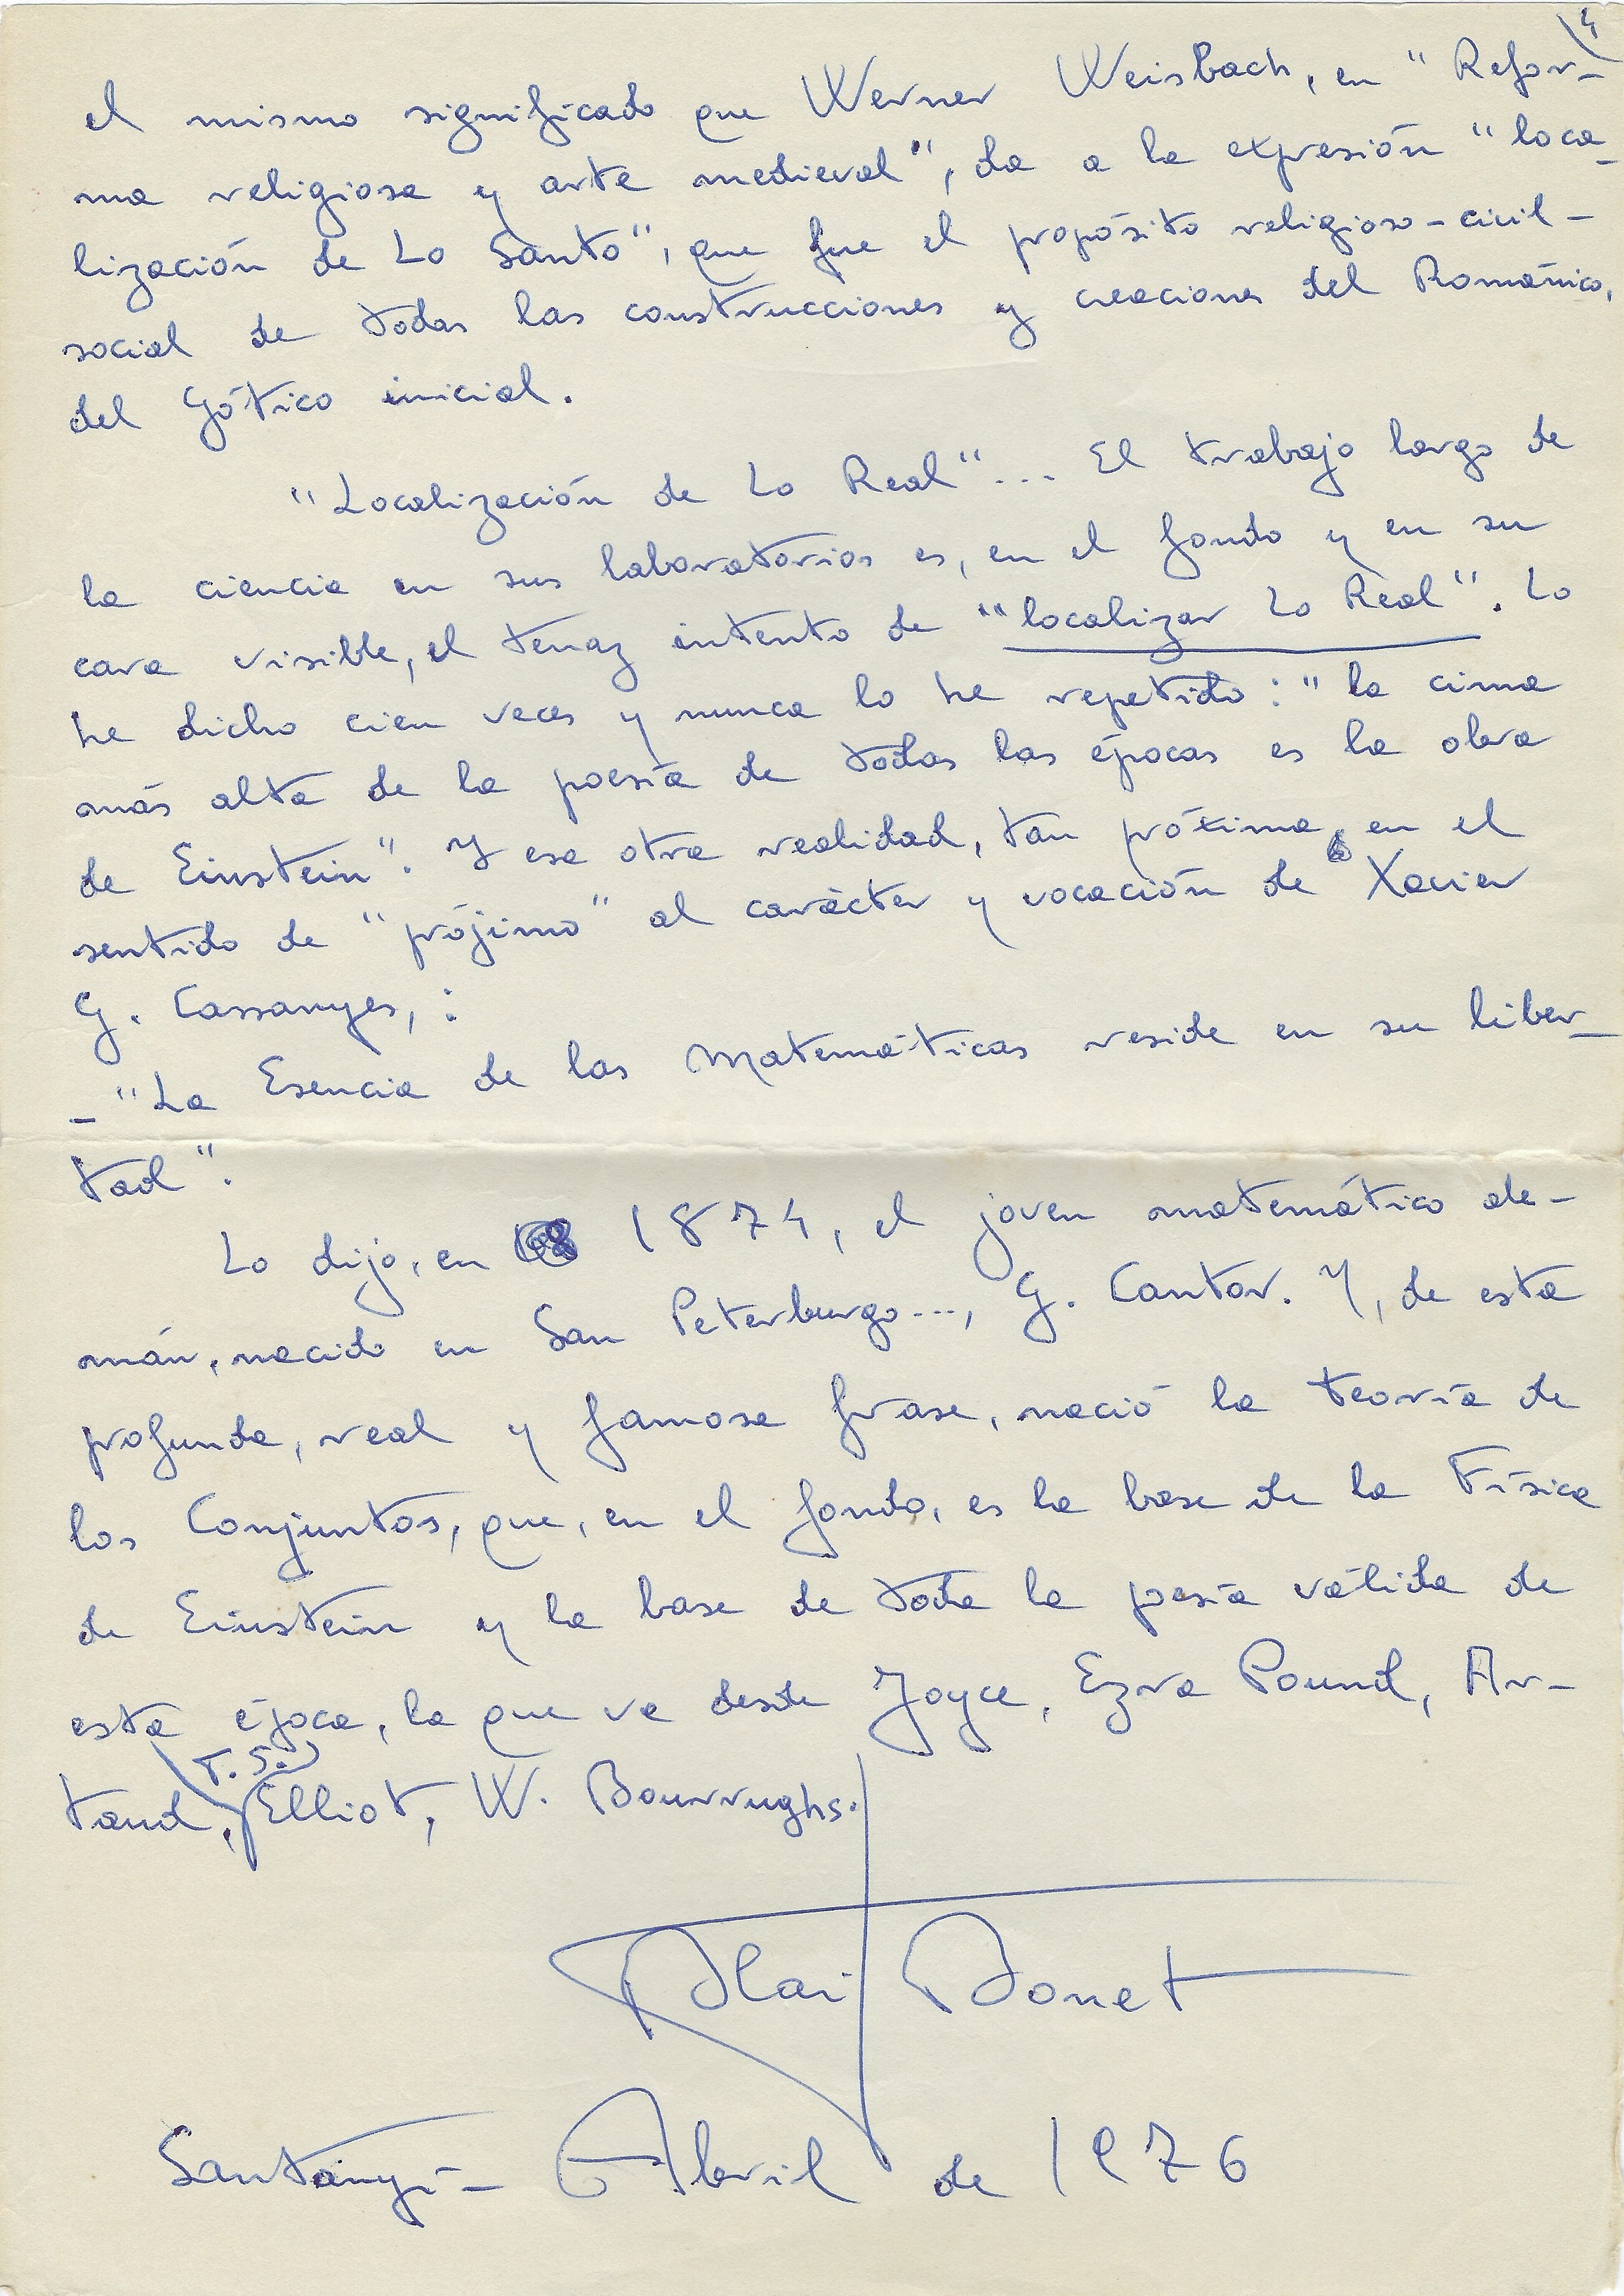 4
el mismo significado que Werner Weisbach, en "Refor-
ma religiosa y arte medieval", da a la expresión "loca-
lización de Lo Santo", que fue el propósito religioso-civil-
social de todas las construcciones y creaciones del Románico,
del Gótico inicial.
"Localización de Lo Real"... El trabajo largo de
la ciencia en sus laboratorios es, en el fondo y en su
cara visible, el tenaz intento de "localizar Lo Real". Lo
he dicho cien veces y nunca lo he repetido: "la cima
más alta de la poesía de todas las épocas es la obra
de Einstein". Y esa otra realidad, tan próxima, en el
sentido de "prójimo" al carácter y vocación de Xavier
G. Cassanyes, :
- "La Esencia de las Matemáticas reside en su liber-
tad".
Lo dijo, en 1874, el joven matemático ale-
mán, nacido en San Peterburgo..., G. Cantor. Y, de esta
profunda, real y famosa frase, nació la teoría de
los Conjuntos, que, en el fondo, es la base de la Física
de Einstein y la base de toda la poesía válida de
esta época, la que va desde Joyce, Ezra Pound, Ar-
taud, T.S. Elliot, W. Bourrughs.
Blai Bonet
Santanyí - Abril de 1976